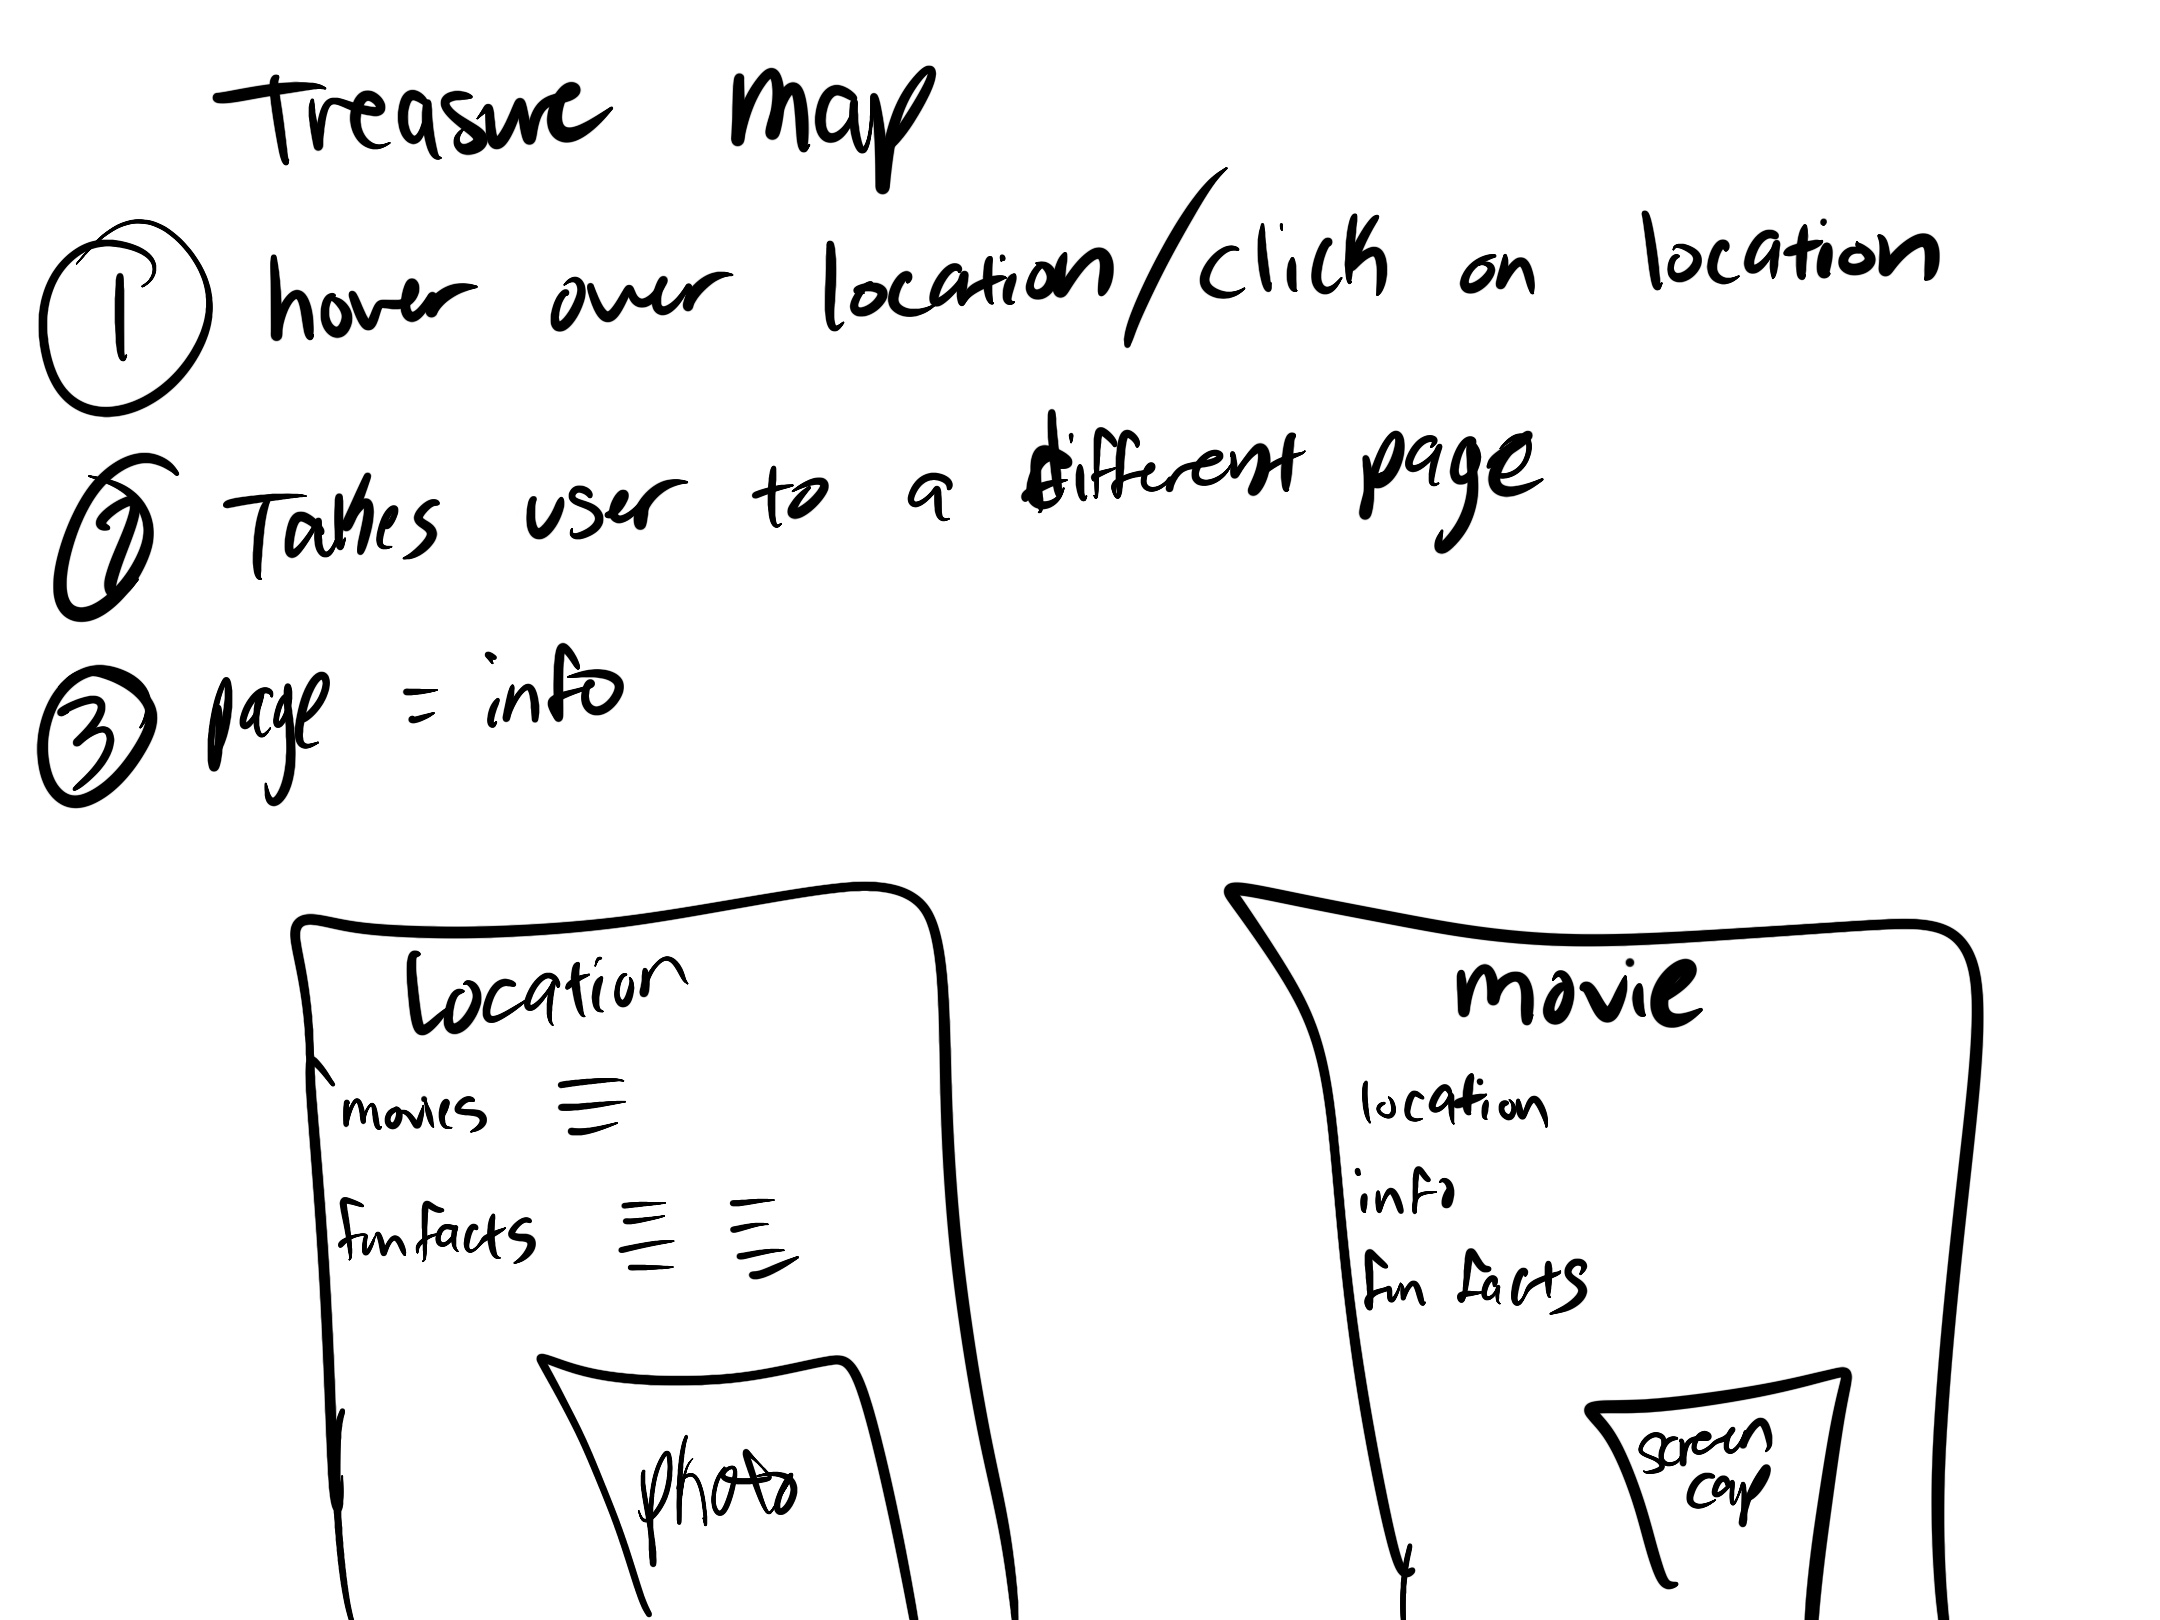 Treasure Map
1 hover over location/click on location
2 Takes user to a different page
3 page = info
Location
movies
fun facts
photo
movie
location
info
fun facts
screen cap